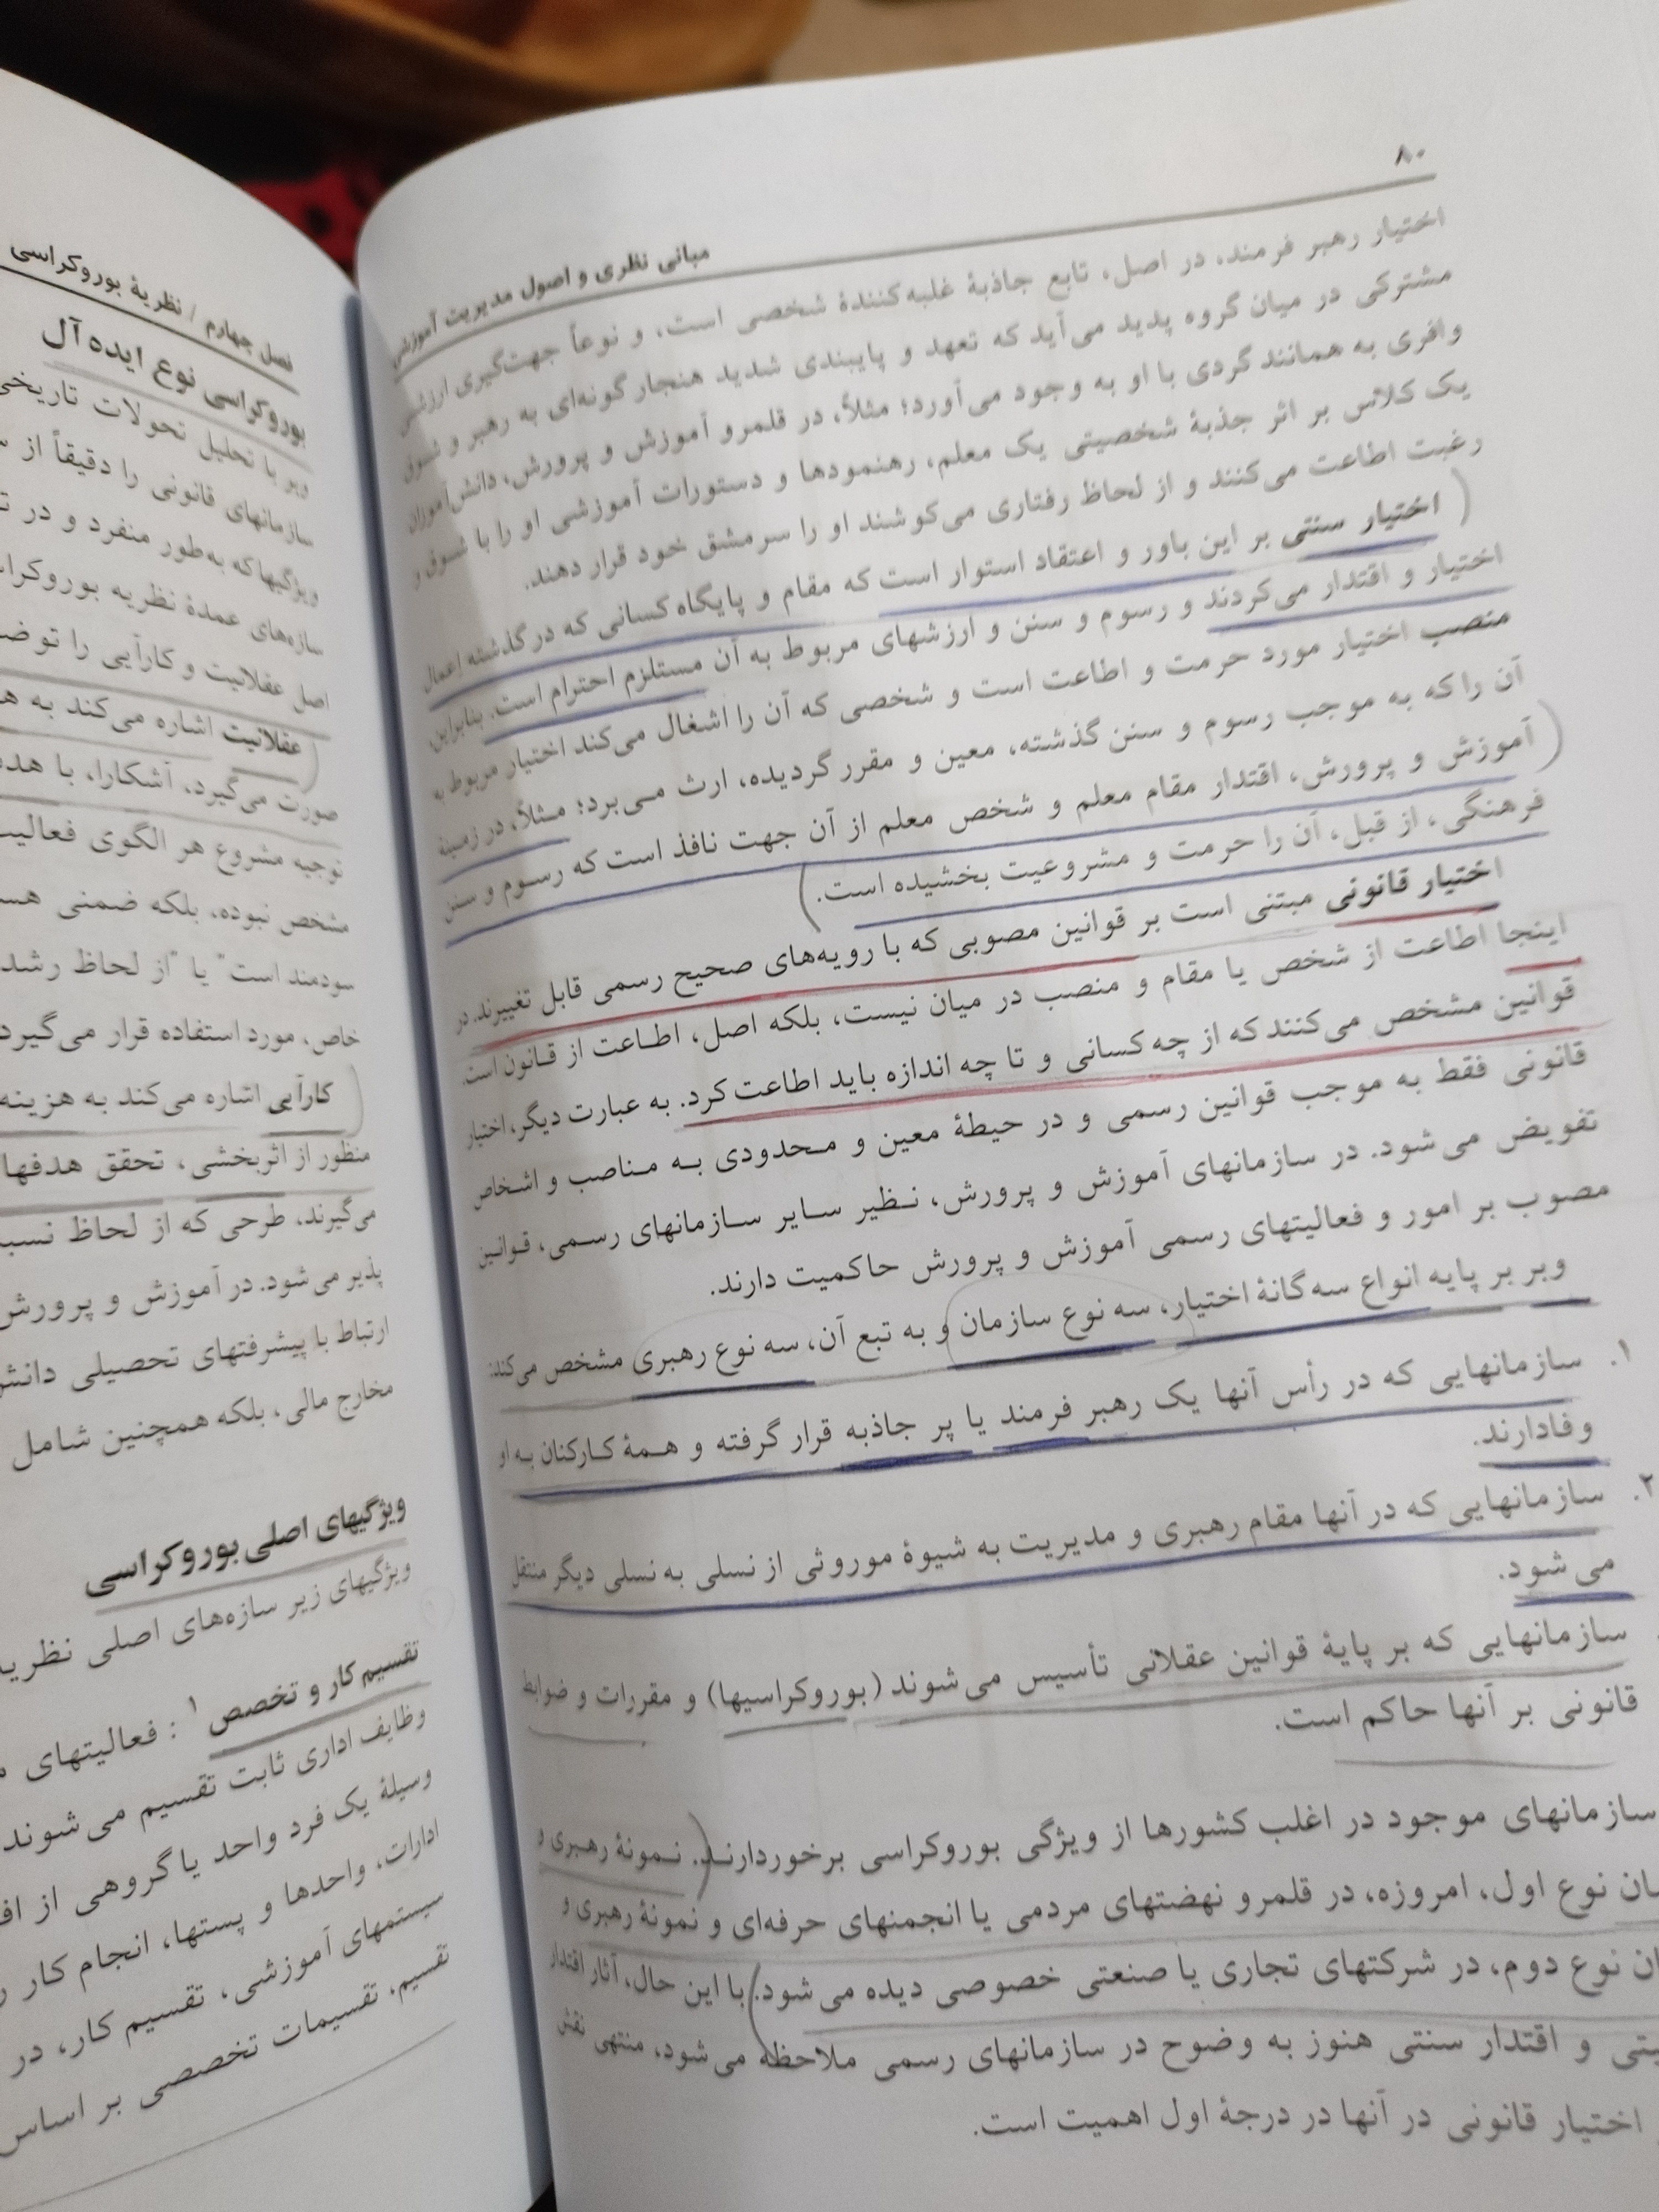 ۸۰
مبانی نظری و اصول مدیریت آموزشی
اختیار رهبر فرمند، در اصل، تابع جاذبهٔ غلبه‌کنندهٔ شخصی است، و نوعاً جهت‌گیری ارزشی
مشترکی در میان گروه پدید می‌آید که تعهد و پایبندی شدید هنجارگونه‌ای به رهبر و شوق
وافری به همانند گردی با او به وجود می‌آورد؛ مثلاً، در قلمرو آموزش و پرورش، دانش‌آموزان
یک کلاس بر اثر جذبهٔ شخصیتی یک معلم، رهنمودها و دستورات آموزشی او را با شوق و
رغبت اطاعت می‌کنند و از لحاظ رفتاری می‌کوشند او را سرمشق خود قرار دهند.
اختیار سنتی بر این باور و اعتقاد استوار است که مقام و پایگاه کسانی که در گذشته اعمال
اختیار و اقتدار می‌کردند و رسوم و سنن و ارزشهای مربوط به آن مستلزم احترام است. بنابراین،
منصب اختیار مورد حرمت و اطاعت است و شخصی که آن را اشغال می‌کند اختیار مربوط به
آن را که به موجب رسوم و سنن گذشته، معین و مقرر گردیده، ارث مـی‌برد؛ مـثلاً، در زمینهٔ
آموزش و پرورش، اقتدار مقام معلم و شخص معلم از آن جهت نافذ است که رسـوم و سنن
فرهنگی، از قبل، آن را حرمت و مشروعیت بخشیده است.
اختیار قانونی مبتنی است بر قوانین مصوبی که با رویه‌های صحیح رسمی قابل تغییرند. در
اینجا اطاعت از شخص یا مقام و منصب در میان نیست، بلکه اصل، اطـاعت از قـانون است.
قوانین مشخص می‌کنند که از چه کسانی و تا چه اندازه باید اطاعت کرد. به عبارت دیگر، اختیار
قانونی فقط به موجب قوانین رسمی و در حیطهٔ معین و مـحدودی بـه مـناصب و اشـخاص
تفویض می‌شود. در سازمانهای آموزش و پرورش، نـظیر سـایر سـازمانهای رسـمی، قـوانین
مصوب بر امور و فعالیتهای رسمی آموزش و پرورش حاکمیت دارند.
وبر بر پایه انواع سه‌گانهٔ اختیار، سه نوع سازمان و به تبع آن، سه نوع رهبری مشخص می‌کند:
۱. سازمانهایی که در رأس آنها یک رهبر فرمند یا پر جاذبه قرار گرفته و هـمهٔ کـارکنان بـه او
وفادارند.
۲. سازمانهایی که در آنها مقام رهبری و مدیریت به شیوهٔ موروثی از نسلی به نسلی دیگر منتقل
می‌شود.
سازمانهایی که بر پایهٔ قوانین عقلانی تأسیس می‌شوند (بوروکراسیها) و مقررات و ضوابط
قانونی بر آنها حاکم است.
سازمانهای موجود در اغلب کشورها از ویژگی بوروکراسی برخوردارنـد. نـمونهٔ رهـبری و
نوع اول، امروزه، در قلمرو نهضتهای مردمی یا انجمنهای حرفه‌ای و نمونهٔ رهبری و
نوع دوم، در شرکتهای تجاری یا صنعتی خصوصی دیده می‌شود. با این حال، آثار اقتدار
و اقتدار سنتی هنوز به وضوح در سازمانهای رسمی ملاحظه می‌شود، منتهی نقش
اختیار قانونی در آنها در درجهٔ اول اهمیت است.
فصل چهارم / نظریهٔ بوروکراسی
بوروکراسی نوع ایده‌آل
وبر با تحلیل تحولات تاریخی
سازمانهای قانونی را دقیقاً از
ویژگیها که به‌طور منفرد و در
سازه‌های عمدهٔ نظریه
اصل عقلانیت و کارآیی را
عقلانیت اشاره می‌کند به
صورت می‌گیرد، آشکارا، با
توجیه مشروع هر الگوی
مشخص نبوده، بلکه ضمنی
سودمند است" یا "از لحاظ رشد
خاص، مورد استفاده قرار می‌گیرد
کارآیی اشاره می‌کند به هزینه
منظور از اثربخشی، تحقق هدفها
می‌گیرند، طرحی که از لحاظ
پذیر می‌شود. در آموزش و پرورش
ارتباط با پیشرفتهای تحصیلی
مخارج مالی، بلکه همچنین شامل
ویژگیهای اصلی بوروکراسی
ویژگیهای زیر سازه‌های اصلی
تقسیم کار و تخصص ۱ : فعالیتهای
وظایف اداری ثابت تقسیم می‌شوند
وسیلهٔ یک فرد واحد یا گروهی از
ادارات، واحدها و پستها، انجام کار
سیستمهای آموزشی، تقسیم کار، در
تقسیم، تقسیمات تخصصی بر اساس